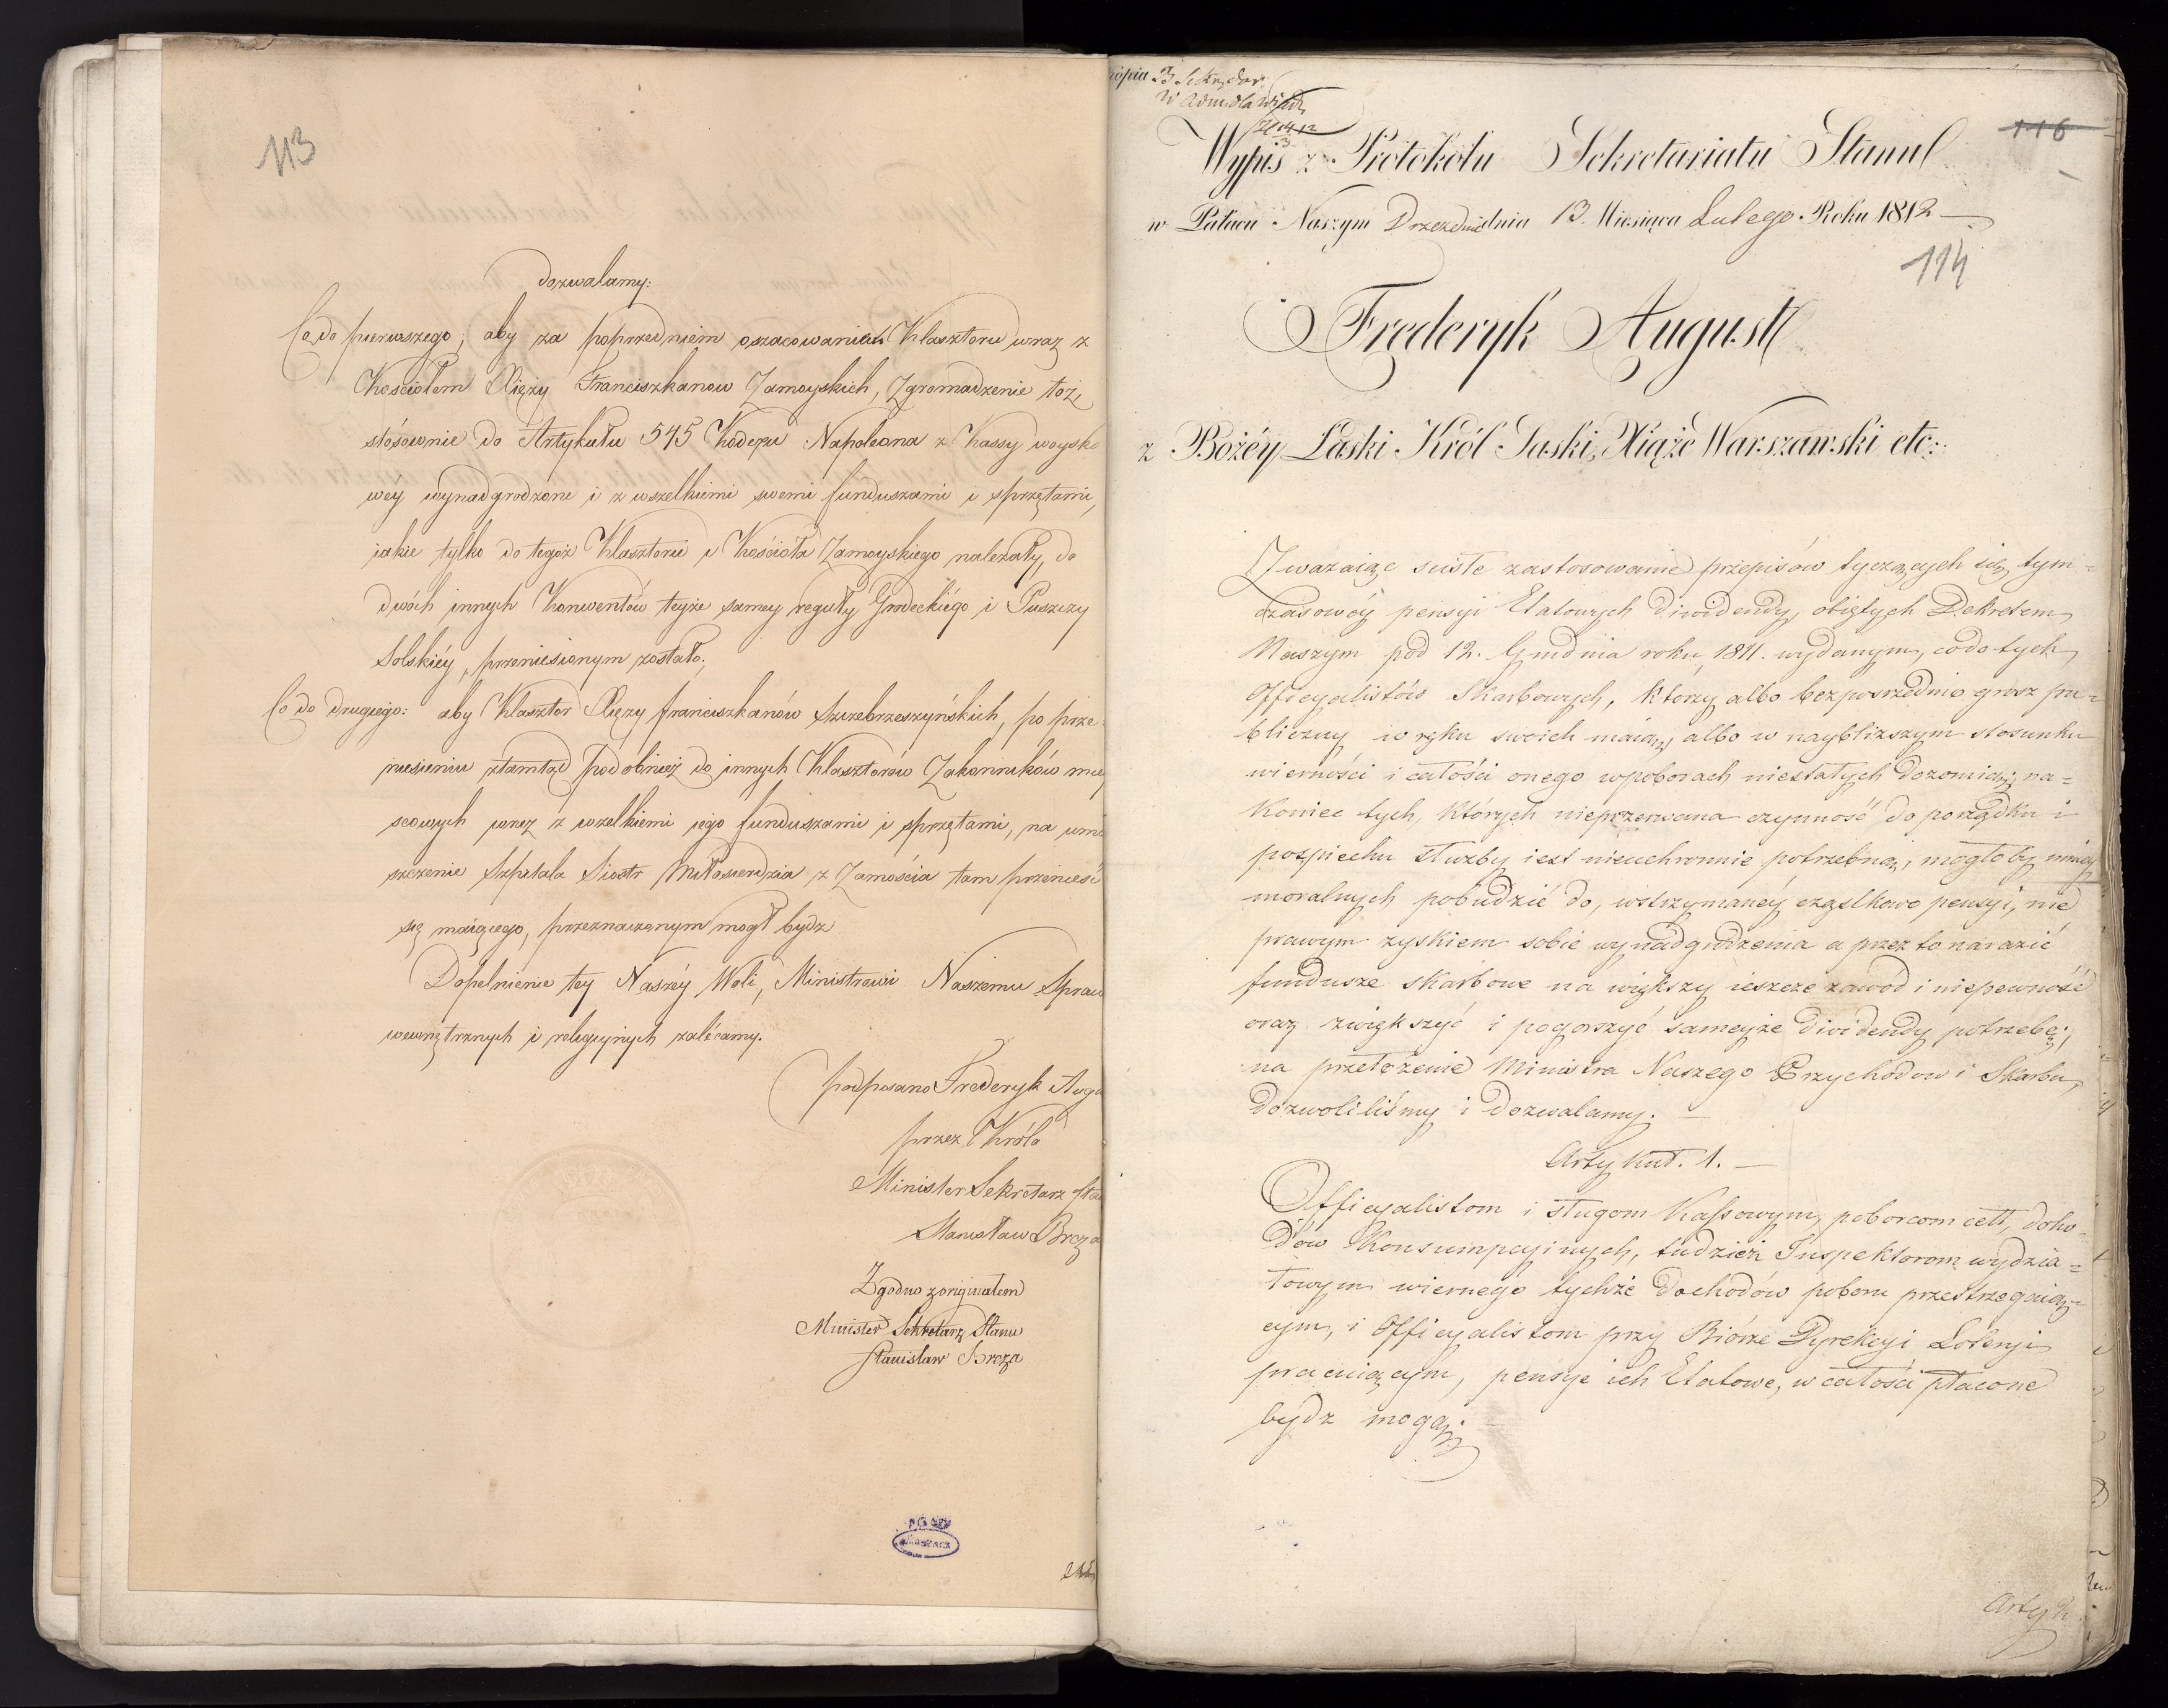 113
dozwalamy:
Co do pierwszego; aby za poprzedniem oszacowaniem Klasztoru wraz z
Kościołem Xięży Franciszkanow Zamoyskich, Zgromadzenie toż
stósownie do Artykułu 545 Kodexu Napoleona z Kassy woysko
wéy wynadgrodzone i z wszelkiemi swemi funduszami i sprzętami,
iakie tylko do tegoż Klasztoru i Kościoła Zamoyskiego należały, do
dwóch innych Konwentów teyże samey reguły Grodeckiégo i Puszczy
Solskiéy, przeniesionym zostało;
Co do drugiego: aby Klasztor Xięży franciszkanów Szczebrzeszyńskich, po prze
niesieniu ztamtąd podobnież do innych Klasztorów Zakonników miey
scowych wraz z wszelkiemi iego funduszami i sprzętami, na umie
szczenie Szpitala Siostr Miłosierdzia z Zamościa tam przenieść
się maiącego, przeznaczonym mogł bydz
Dopełnienie tey Naszéy Woli, Ministrowi Naszemu Spraw
wewnętrznych i religiynych zalécamy.
podpisano Frederyk Augu
przez Króla
Minister Sekretarz Sta
Stanisław Breza
Zgodno z originałem
Minister Sekretarz Stanu
Stanisław Breza
AGAD
WARSZAWA
116
Wypis z Protokołu Sekretariatu Stanu
w Pałacu Naszym Drzeznie dnia 13. Miesiąca Lutego Roku 1812
114
Frederyk August
z Bożéy Łaski Król Saski, Xiąże Warszawski etc:
Zważaiąc ścisłe zastosowanie przepisów tyczących się tym=
czasowéy pensyi Etatowych dividendy, obiętych Dekretem
Naszym pod 12. Grudnia roku 1811. wydanym, co do tych
Officyalistów Skarbowych, którzy albo bezpośrednio grosz pu=
bliczny w ręku swoich maią, albo w nayblizszym stosunku
wierności i całości onego w poborach niestałych dozoruią, na=
koniec tych, których nieprzerwana czynność do porządku i
pospiechu służby iest nieuchronnie potrzebna, mogłoby mniey
moralnych pobudzić do, wstrzymanéy cząstkowo pensyi, nie
prawym zyskiem sobie wynadgrodzenia a przez to narazić
fundusze skarbowe na większy ieszcze zawod i niepewność
oraz zwiększyć i pogorszyć sameyże dividendy potrzebę;
na przełożenie Ministra Naszego Przychodow i Skarbu,
dozwoliliśmy i dozwalamy.
Artykuł. 1.
Officyalistom i sługom Kassowym, poborcom cell, docho=
dów Konsumpcyinych, tudzież Inspektorom wydzia=
łowym wiernego tychże dochodów poboru przestrzegaią=
cym, i Officyalistom przy Biórze Dyrekcyi Loteryi
pracuiącym, pensye ich Etatowe, w całości płacone
bydz mogą.
Artyk